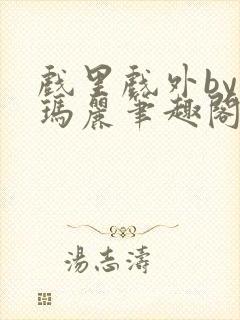 戲里戲外by
瑪麗筆趣閣
湯志濤